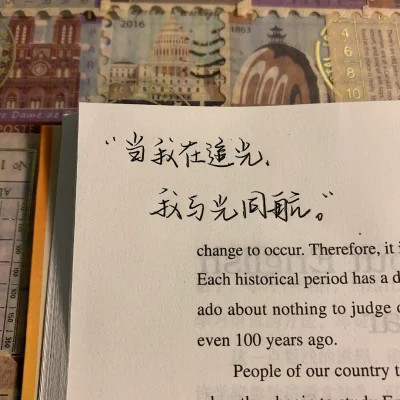 2016
1863
4
6
8
10
"当我在追光、
我与光同航。"
change to occur. Therefore, it i
Each historical period has a d
ado about nothing to judge o
even 100 years ago.
People of our country t